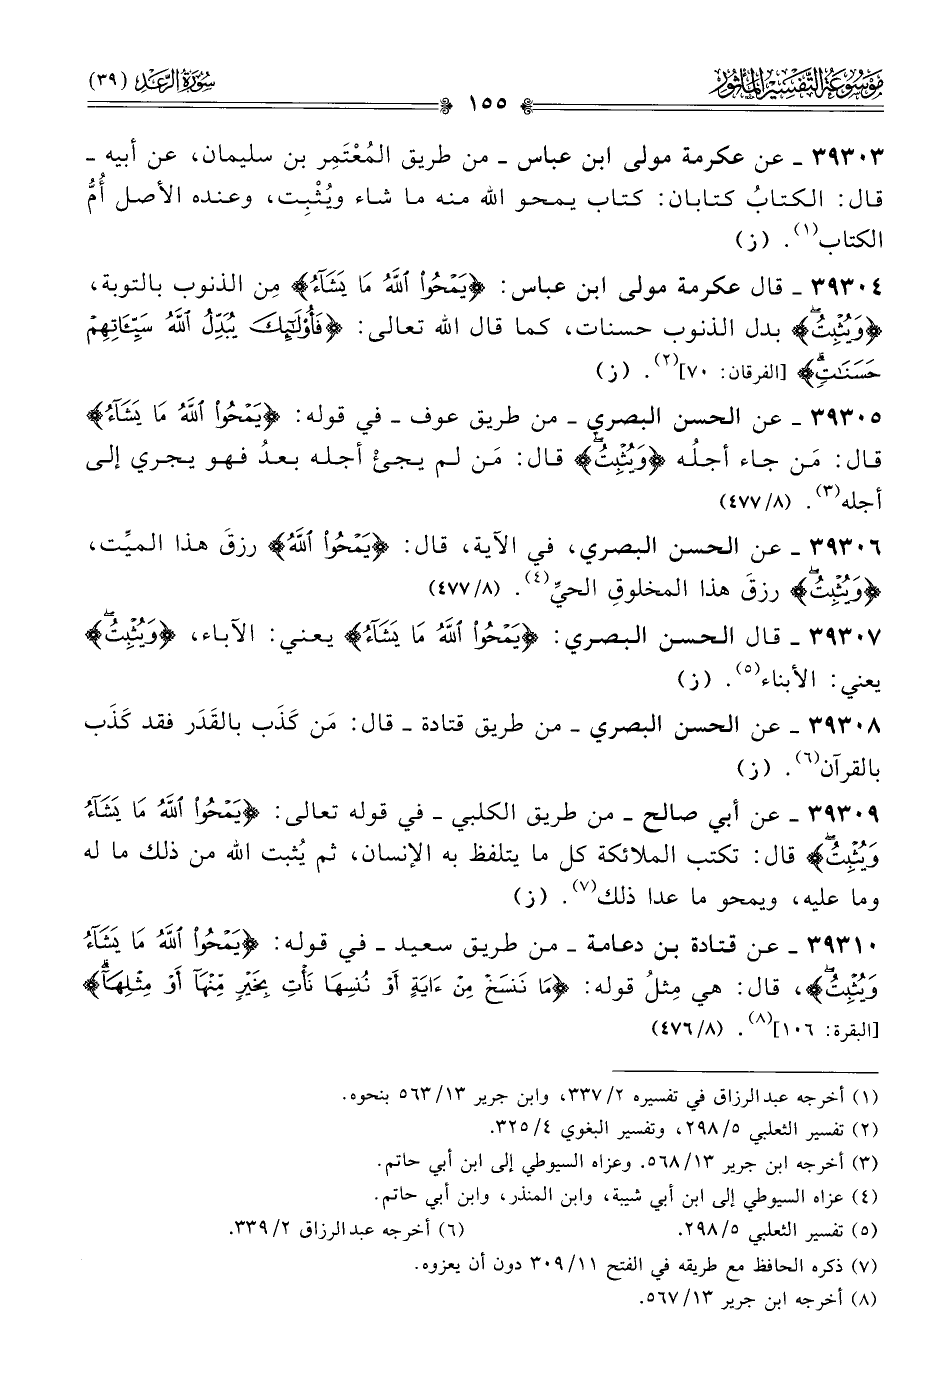 موسوعة التفسير المأثور
١٥٥
سورة الرعد (٣٩)
٣٩٣٠٣ ـ عن عكرمة مولى ابن عباس ـ من طريق المُعْتَمِر بن سليمان، عن أبيه ـ
قال: الكتابُ كتابان: كتاب يمحو الله منه ما شاء ويُثْبِت، وعنده الأصل أُمُّ
الكتاب(١). (ز)
٣٩٣٠٤ ـ قال عكرمة مولى ابن عباس: ﴿يَمْحُوا۟ ٱللَّهُ مَا يَشَآءُ﴾ مِن الذنوب بالتوبة،
﴿وَيُثْبِتُۖ﴾ بدل الذنوب حسنات، كما قال الله تعالى: ﴿فَأُو۟لَـٰٓئِكَ يُبَدِّلُ ٱللَّهُ سَيِّـَٔاتِهِمْ
حَسَنَـٰتٍۗ﴾ [الفرقان: ٧٠](٢). (ز)
٣٩٣٠٥ ـ عن الحسن البصري ـ من طريق عوف ـ في قوله: ﴿يَمْحُوا۟ ٱللَّهُ مَا يَشَآءُ﴾
قال: مَن جاء أجلُه ﴿وَيُثْبِتُۖ﴾ قال: مَن لم يجئْ أجله بعدُ فهو يجري إلى
أجله(٣). (٨/ ٤٧٧)
٣٩٣٠٦ ـ عن الحسن البصري، في الآية، قال: ﴿يَمْحُوا۟ ٱللَّهُ﴾ رزقَ هذا الميِّت،
﴿وَيُثْبِتُۖ﴾ رزقَ هذا المخلوقِ الحيِّ(٤). (٨/ ٤٧٧)
٣٩٣٠٧ ـ قال الحسن البصري: ﴿يَمْحُوا۟ ٱللَّهُ مَا يَشَآءُ﴾ يعني: الآباء، ﴿وَيُثْبِتُۖ﴾
يعني: الأبناء(٥). (ز)
٣٩٣٠٨ ـ عن الحسن البصري ـ من طريق قتادة ـ قال: مَن كَذَب بالقَدَر فقد كَذَب
بالقرآن(٦). (ز)
٣٩٣٠٩ ـ عن أبي صالح ـ من طريق الكلبي ـ في قوله تعالى: ﴿يَمْحُوا۟ ٱللَّهُ مَا يَشَآءُ
وَيُثْبِتُۖ﴾ قال: تكتب الملائكة كل ما يتلفظ به الإنسان، ثم يُثبت الله من ذلك ما له
وما عليه، ويمحو ما عدا ذلك(٧). (ز)
٣٩٣١٠ ـ عن قتادة بن دعامة ـ من طريق سعيد ـ في قوله: ﴿يَمْحُوا۟ ٱللَّهُ مَا يَشَآءُ
وَيُثْبِتُۖ﴾، قال: هي مِثلُ قوله: ﴿مَا نَنسَخْ مِنْ ءَايَةٍ أَوْ نُنسِهَا نَأْتِ بِخَيْرٍ مِّنْهَآ أَوْ مِثْلِهَآۗ﴾
[البقرة: ١٠٦](٨). (٨/ ٤٧٦)
(١) أخرجه عبدالرزاق في تفسيره ٢/ ٣٣٧، وابن جرير ١٣/ ٥٦٣ بنحوه.
(٢) تفسير الثعلبي ٥/ ٢٩٨، وتفسير البغوي ٤/ ٣٢٥.
(٣) أخرجه ابن جرير ١٣/ ٥٦٨. وعزاه السيوطي إلى ابن أبي حاتم.
(٤) عزاه السيوطي إلى ابن أبي شيبة، وابن المنذر، وابن أبي حاتم.
(٥) تفسير الثعلبي ٥/ ٢٩٨. (٦) أخرجه عبدالرزاق ٢/ ٣٣٩.
(٧) ذكره الحافظ مع طريقه في الفتح ١١/ ٣٠٩ دون أن يعزوه.
(٨) أخرجه ابن جرير ١٣/ ٥٦٧.